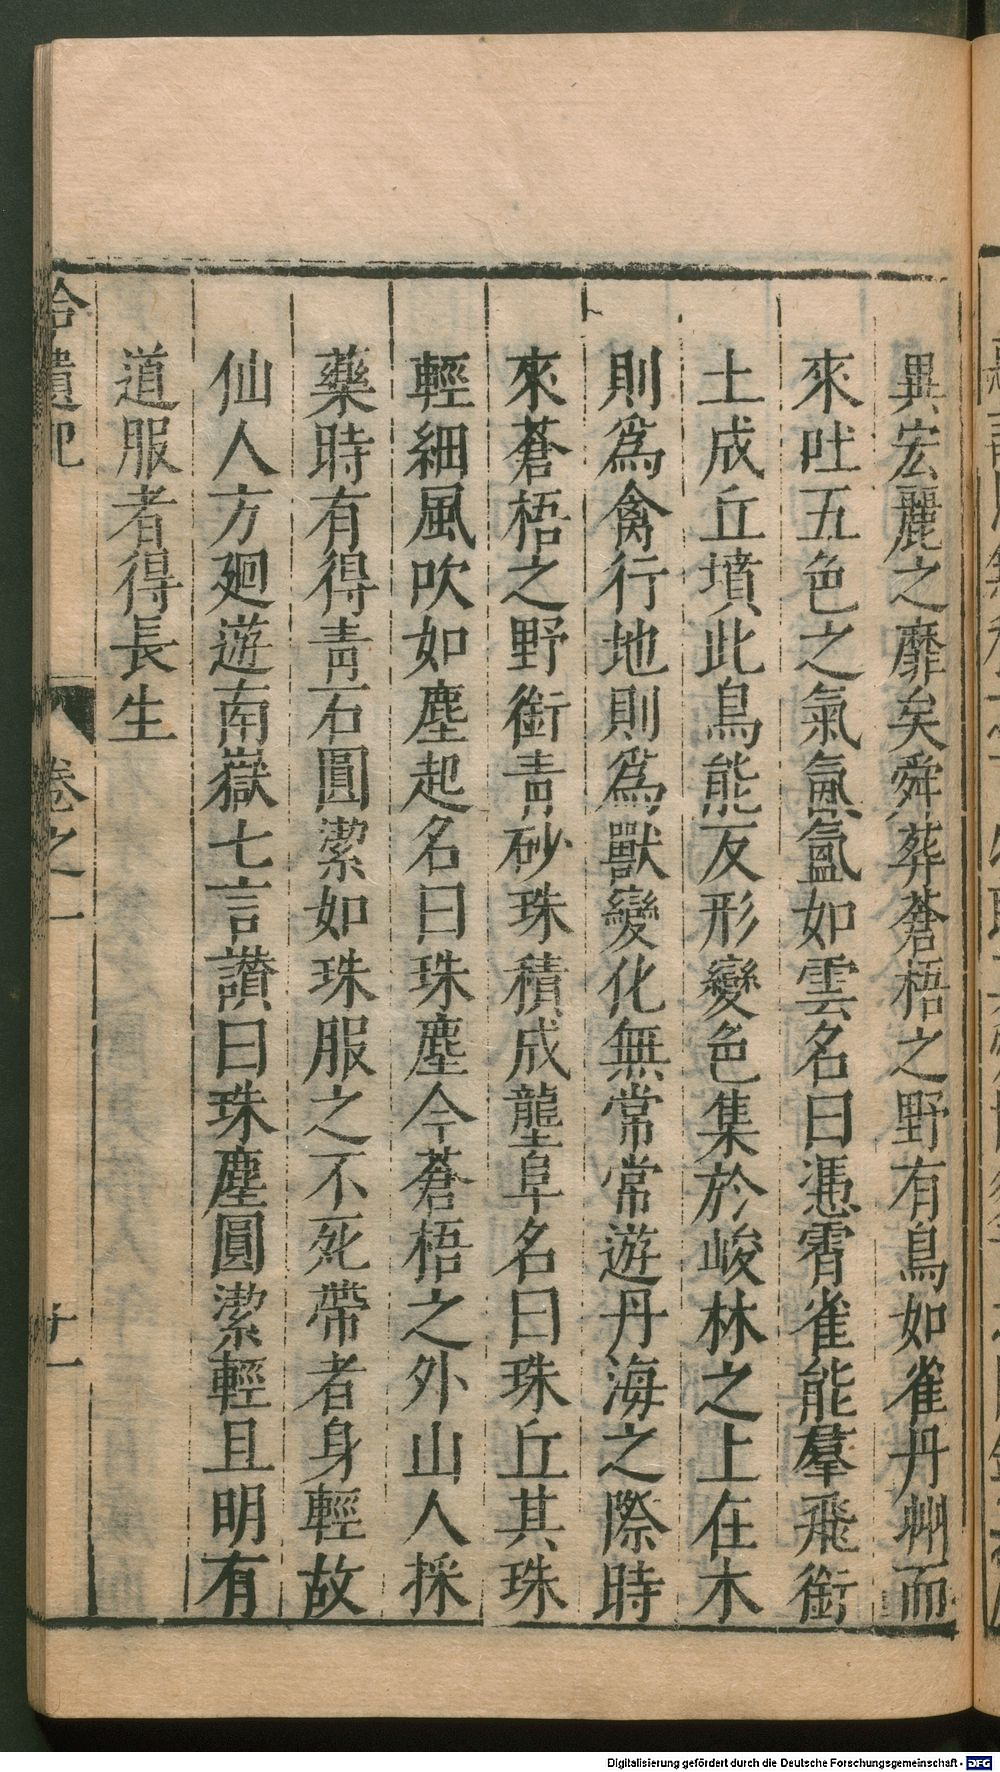 異宏麗之靡矣舜葬蒼梧之野有鳥如雀丹州而
來吐五色之氣氤氳如雲名曰憑霄雀能羣飛銜
土成丘墳此鳥能反形變色集於峻林之上在木
則爲禽行地則爲獸變化無常常遊丹海之際時
來蒼梧之野銜青砂珠積成壟阜名曰珠丘其珠
輕細風吹如塵起名曰珠塵今蒼梧之外山人採
藥時有得青石圓潔如珠服之不死帶者身輕故
仙人方廻遊南嶽七言讃曰珠塵圓潔輕且明有
道服者得長生
拾遺記 卷之一
Digitalisierung gefördert durch die Deutsche Forschungsgemeinschaft - DFG